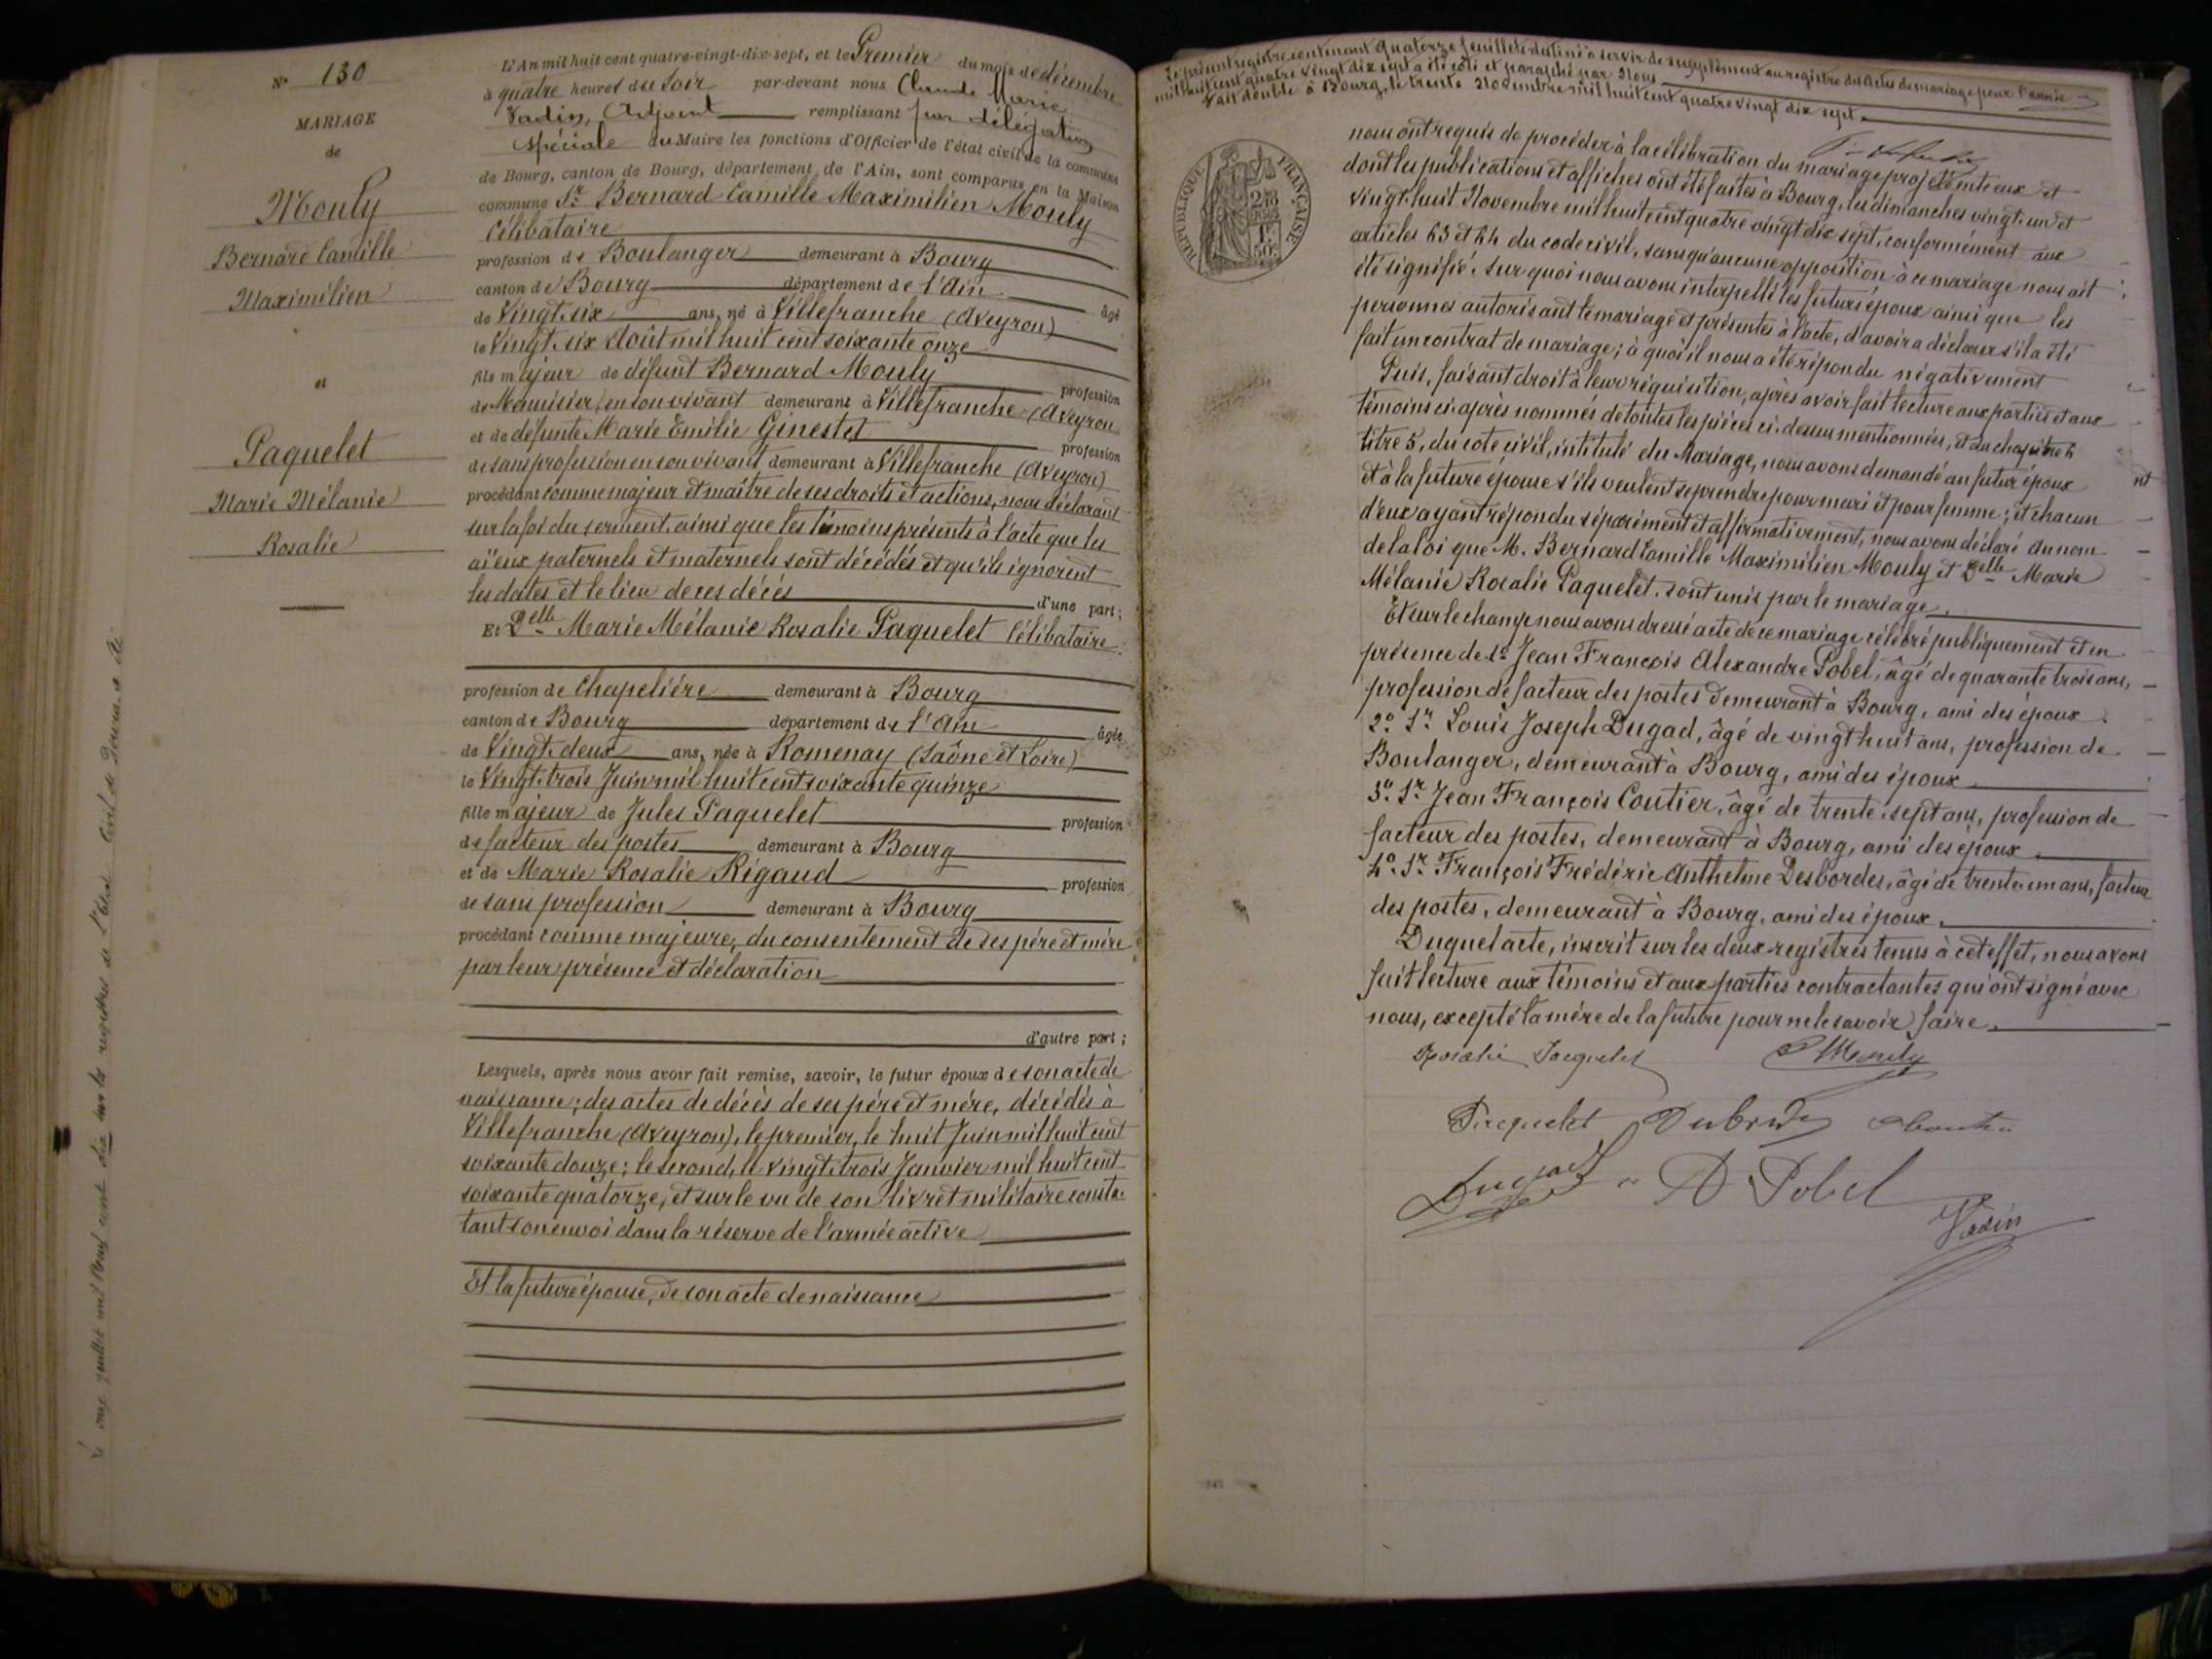 N° 130
MARIAGE
de
Mouly
Bernard Camille
Maximilien
et
Paquelet
Marie Mélanie
Rosalie
L'An mil huit cent quatre-vingt-dix-sept, et le Premier du mois de décembre
à quatre heures du soir par-devant nous Claude Marie
Vadin, Adjoint remplissant par délégation
spéciale du Maire les fonctions d'Officier de l'état civil de la commune
de Bourg, canton de Bourg, département de l'Ain, sont comparus en la Maison
commune Sr Bernard Camille Maximilien Mouly
Célibataire
profession de Boulanger demeurant à Bourg
canton de Bourg département de l'Ain âgé
de Vingt-six ans, né à Villefranche (Aveyron)
le Vingt-six Août mil huit cent soixante onze
fils majeur de défunt Bernard Mouly profession
de Menuisier, en son vivant demeurant à Villefranche (Aveyron
et de défunte Marie Emilie Ginestet profession
de sans profession en son vivant demeurant à Villefranche (Aveyron)
procédant comme majeur et maître de ses droits et actions, nous déclarant
sur la foi du serment, ainsi que les témoins présents à l'acte que les
aïeux paternels et maternels sont décédés et qu'ils ignorent
les dates et le lieu de ces décès d'une part;
Et Delle Marie Mélanie Rosalie Paquelet Célibataire.
profession de Chapelière demeurant à Bourg
canton de Bourg département de l'Ain âgée
de Vingt-deux ans, née à Romenay (Saône et Loire)
le Vingt-trois Juin mil huit cent soixante quinze
fille majeur de Jules Paquelet profession
de facteur des postes demeurant à Bourg
et de Marie Rosalie Rigaud profession
de sans profession demeurant à Bourg
procédant comme majeure, du consentement de ses père et mère
par leur présence et déclaration
d'autre part;
Lesquels, après nous avoir fait remise, savoir, le futur époux de son acte de
naissance; des actes de décès de ses père et mère, décédés à
Villefranche (Aveyron), le premier, le huit Juin mil huit cent
soixante douze; le second, le vingt-trois Janvier mil huit cent
soixante quatorze, et sur le vu de son livret militaire consta-
tant son envoi dans la réserve de l'armée active
Et la future épouse, de son acte de naissance
Le présent registre contenant quatorze feuillets destiné à servir de supplément au registre des Actes de mariage pour l'année
mil huit cent quatre vingt dix sept a été coté et paraphé par Nous
Fait double à Bourg, le trente Novembre mil huit cent quatre vingt dix sept.
RÉPUBLIQUE FRANÇAISE
nous ont requis de procéder à la célébration du mariage projeté entre eux et
dont les publications et affiches ont été faites à Bourg, les dimanches vingt-un et
vingt-huit Novembre mil huit cent quatre vingt dix sept, conformément aux
articles 63 et 64 du code civil, sans qu'aucune opposition à ce mariage nous ait
été signifié. Sur quoi nous avons interpellé les futurs époux ainsi que les
personnes autorisant le mariage et présentes à l'acte, d'avoir à déclarer s'il a été
fait un contrat de mariage; à quoi il nous a été répondu négativement
Puis, faisant droit à leur réquisition, après avoir fait lecture aux parties et aux
témoins ci-après nommés de toutes les pièces ci-dessus mentionnées, et du chapitre 6
titre 5, du cote civil, intitulé du Mariage, nous avons demandé au futur époux
et à la future épouse s'ils veulent se prendre pour mari et pour femme; et chacun
d'eux ayant répondu séparément et affirmativement, nous avons déclaré au nom
de la loi que M. Bernard Camille Maximilien Mouly et Delle Marie
Mélanie Rosalie Paquelet, sont unis par le mariage.
Et sur le champ nous avons dressé acte de ce mariage célébré publiquement et en
présence de 1° Jean François Alexandre Pobel, âgé de quarante trois ans,
profession de facteur des postes demeurant à Bourg, ami des époux.
2° Sr Louis Joseph Dugad, âgé de vingt huit ans, profession de
Boulanger, demeurant à Bourg, ami des époux
3° Sr Jean François Coutier, âgé de trente-sept ans, profession de
facteur des postes, demeurant à Bourg, ami des époux
4° Sr François Frédéric Anthelme Desbordes, âgé de trente un ans, facteur
des postes, demeurant à Bourg, ami des époux.
Duquel acte, inscrit sur les deux registres tenus à cet effet, nous avons
fait lecture aux témoins et aux parties contractantes qui ont signé avec
nous, excepté la mère de la future pour ne le savoir faire.
Rosalie Paquelet Mouly
Paquelet
Dugad A Pobel
Vadin